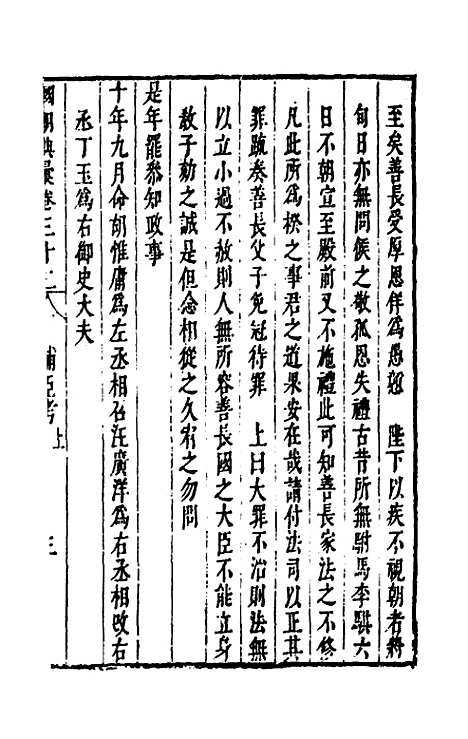 至矣善長受厚恩佯為愚懟　陛下以疾不視朝者將
旬日亦無問候之敬孤恩失禮古昔所無駙馬李騏六
日不朝宣至殿前又不施禮此可知善長家法之不修
凡此所為揆之事君之道果安在哉請付法司以正其
罪䟽奏善長父子免冠待罪　上曰大罪不治則法無
以立小過不赦則人無所容善長國之大臣不能立身
敎子劾之誠是但念相從之久宥之勿問
是年罷叅知政事
十年九月命胡惟庸為左丞相召汪廣洋為右丞相改右
丞丁玉為右御史大夫
國朝典彙卷三十二　輔臣考上　三